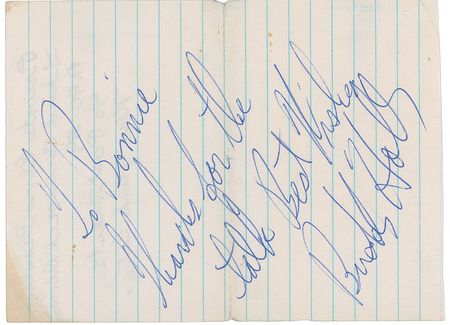 To Bonnie
Thanks for the
talk Best Wishes
Buddy Holly